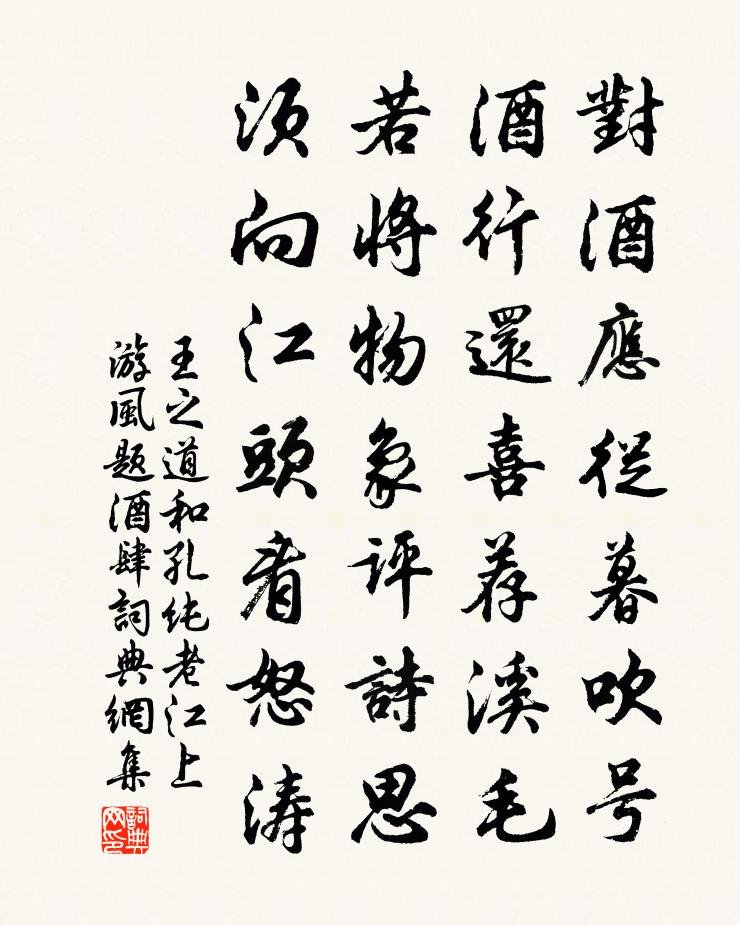 對酒應從暮吹号
酒行還喜荐溪毛
若將物象評詩思
須向江頭看怒濤
王之道和孔純老江上
游風題酒肆詞典網集
詞典网印